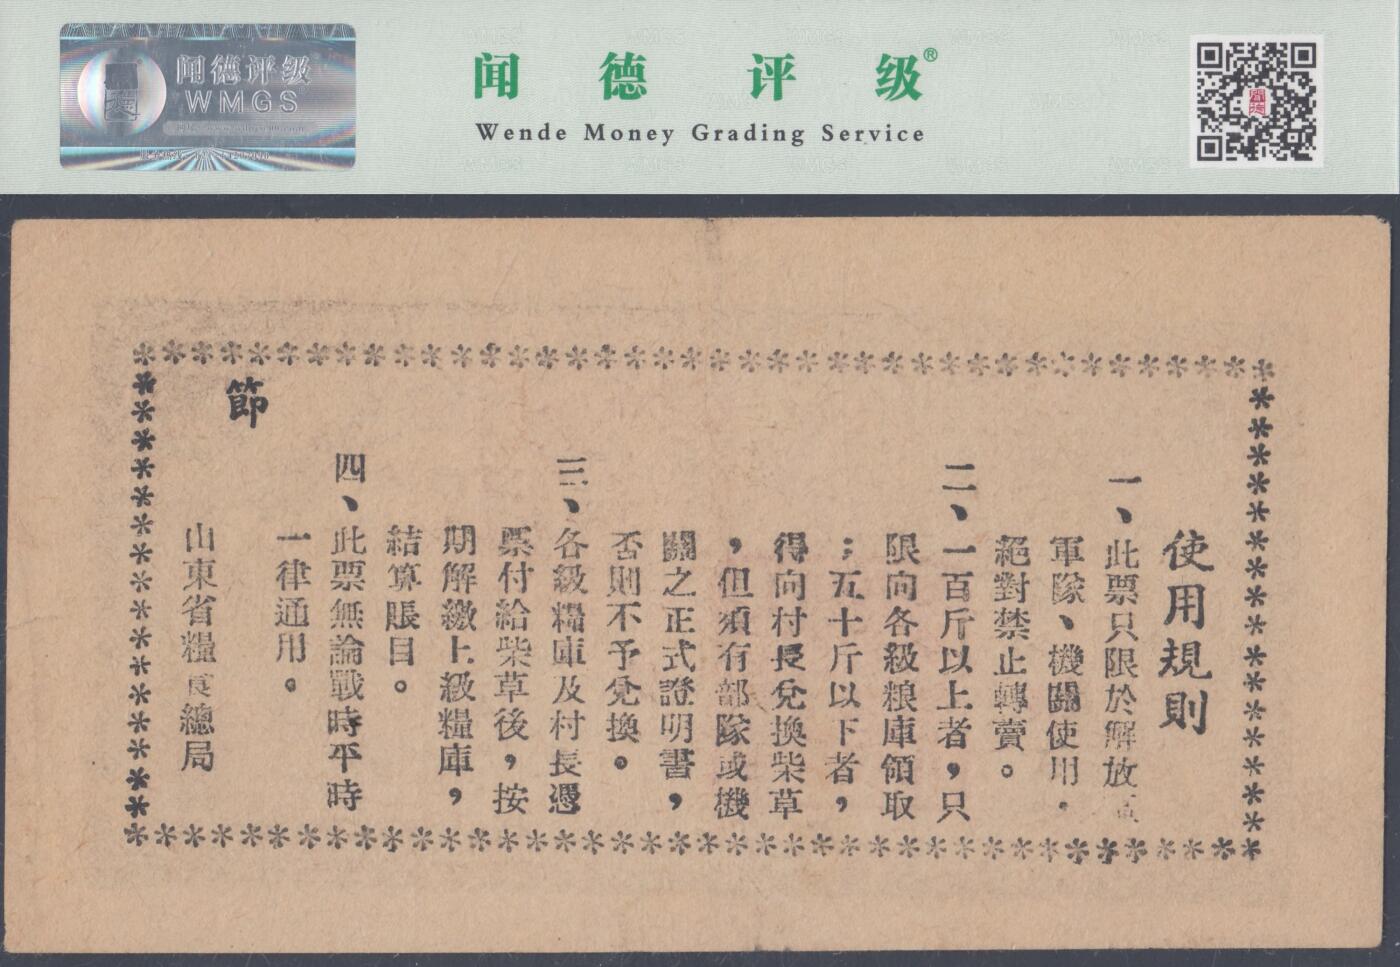 闻德评级
WMGS
闻德评级®
Wende Money Grading Service
使用規則
一、此票只限於解放區
軍隊、機關使用，
絕對禁止轉賣。
二、一百斤以上者，只
限向各級粮庫領取
；五十斤以下者，
得向村長兌換柴草
，但須有部隊或機
關之正式證明書，
否則不予兌換。
三、各級糧庫及村長憑
票付給柴草後，按
期解繳上級糧庫，
結算賬目。
四、此票無論戰時平時
一律通用。
節
山東省糧食總局